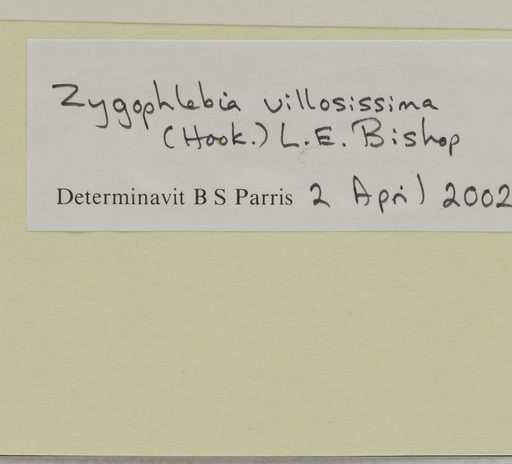 Zygophlebia villosissima
(Hook.) L.E. Bishop
Determinavit B S Parris 2 April 2002